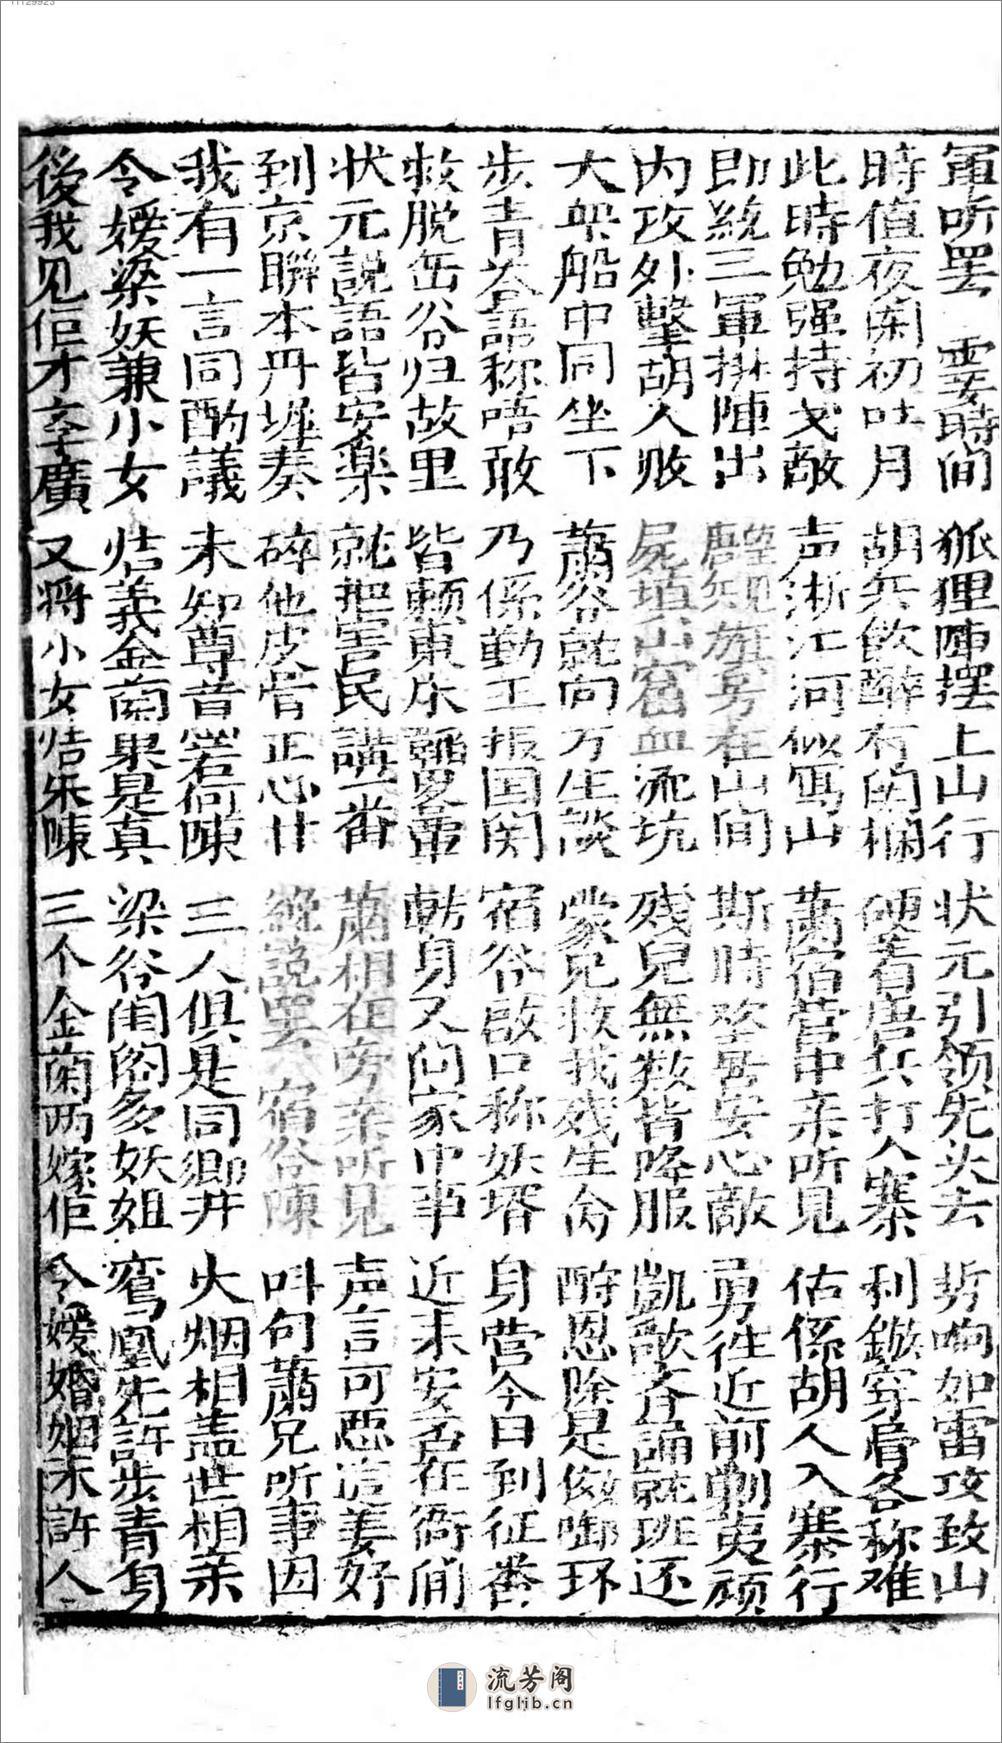 軍听罢　霎時间　狐狸陣摆上山行　状元引领先头去　炮响如雷攻致山
時值夜闌初吐月　胡兵飲醉冇関欄　硬着唐兵打入寨　利鏃穿骨各称难
此時勉强持戈敵　声淅江河似寫山　萧宿营中亲听見　估係胡人入寨行
即統三軍掛陣出　睲規旗号在山间　斯時答号安心敵　勇往近前剿夷頑
内攻外擊胡人败　屍填山窟血流坑　残兒無数皆降服　凱歌齐誦就班还
大眾船中同坐下　蕭爷就向方生談　蒙兄救我残生命　酧恩除是做啣环
步青答語称唔敢　乃係勤王报国関　宿爷啟口称妖壻　身营今日到征番
救脱缶爷归故里　皆賴東床顧更畨　転身又问家中事　近来安否在衙間
状元説語皆安楽　就把害民講一番　萧相在旁亲听見　声言可惡這姜奸
到京聯本丹墀奏　碎他皮骨正心甘　縂説罢　宿爷陳　叫句蕭兄听事因
我有一言同酌議　未知尊旨若何陳　三人俱是同鄉井　火烟相盖世相亲
令嫒梁妖兼小女　结義金蘭果是真　梁爷闺阁多妖姐　鸾凰先許步青身
後我见佢才学廣　又將小女结朱陳　三个金蘭两嫁佢　令嫒婚姻未許人